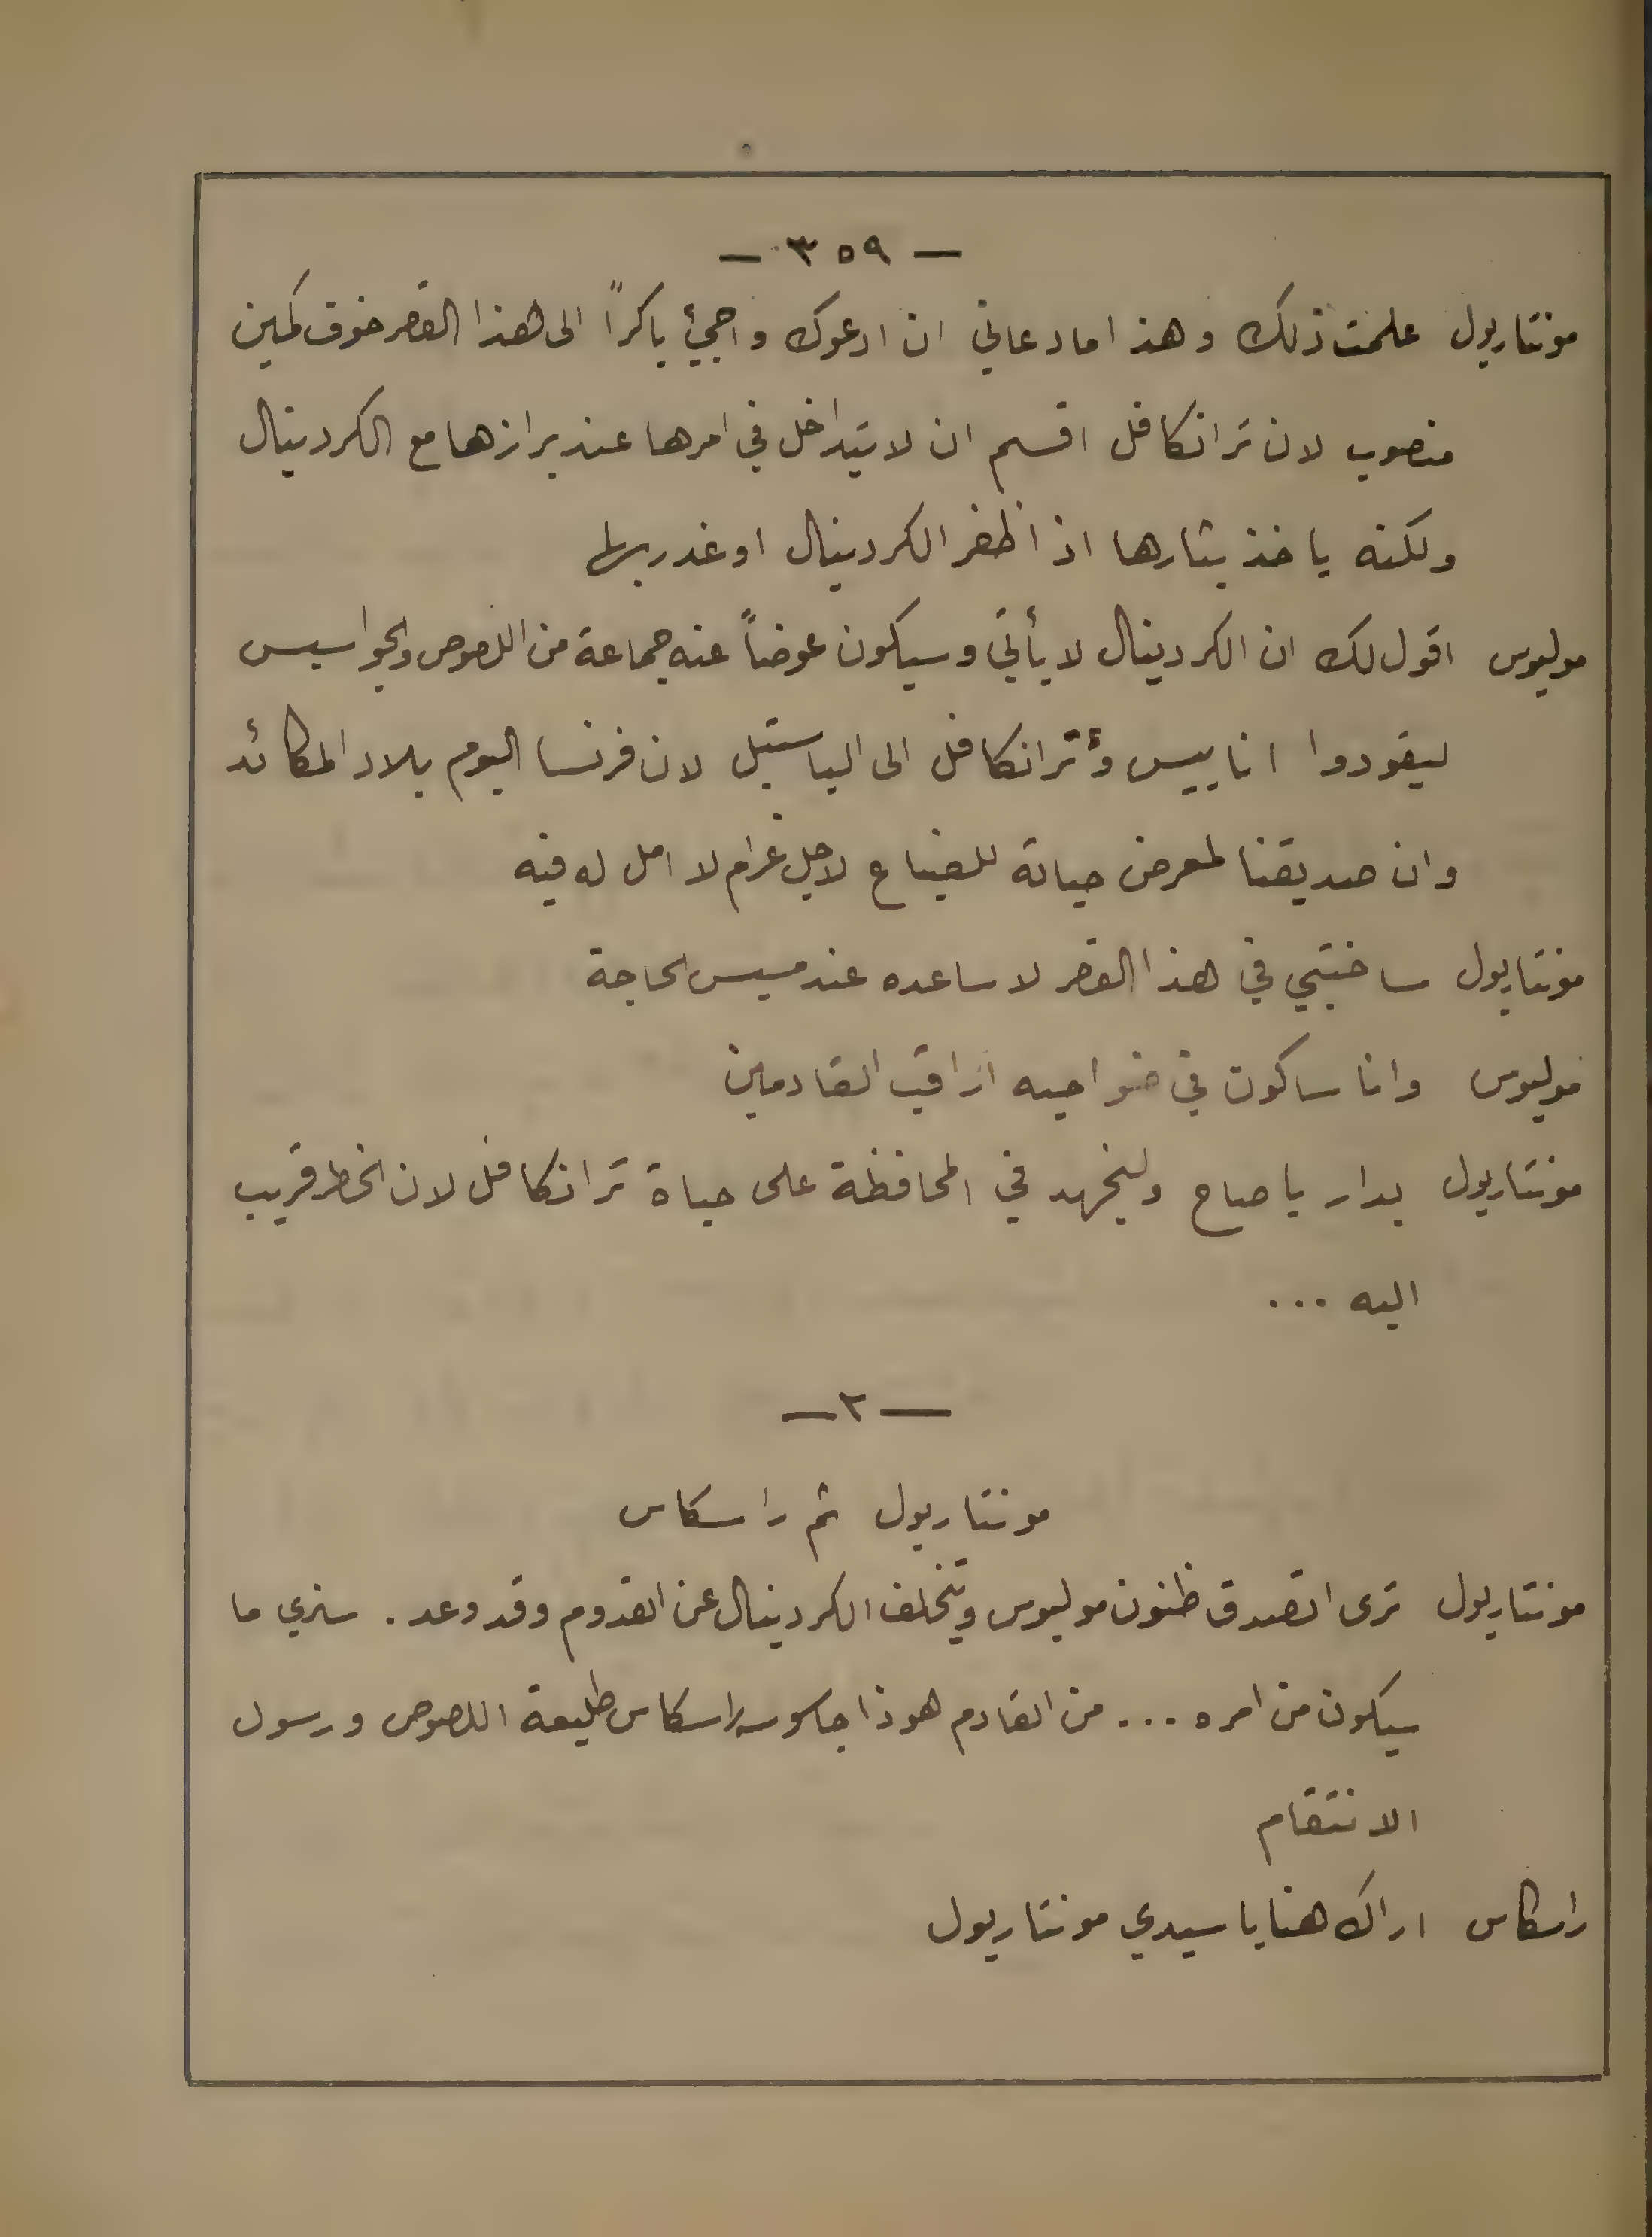 — ٣٥٩ —
مونتاريول علمت ذلك وهذا ما دعاني ان ادعوك واجيئ باكراً الى هذا القصر خوف كمين
منصوب لان ترانكافل اقسم ان لا يتداخل في امرها عند برازها مع الكردينال
ولكنه ياخذ بثارها اذا ظفر الكردينال او غدر بها
موليوس اقول لك ان الكردينال لا يأتي وسيكون عوضاً عنه جماعة من اللصوص والجواسيس
ليقودوا اناييس وترانكافل الى الباستيل لان فرنسا اليوم بلاد المكائد
وان صديقنا لمعرض حياته للضياع لاجل غرام لا امل له فيه
مونتاريول ساختبي في هذا القصر لاساعده عند مسيس الحاجة
موليوس وانا ساكون في ضواحيه اراقب القادمين
مونتاريول بدار يا صاح ولنجهد في المحافظة على حياة ترانكافل لان الخطر قريب
اليه ...
— ٢ —
مونتاريول ثم راسكاس
مونتاريول ترى اتصدق ظنون موليوس ويتخلف الكردينال عن القدوم وقد وعد . سنري ما
سيكون من امره ... من القادم هوذا جاسوسه راسكاس طليعة اللصوص ورسول
الانتقام
راسكاس اراك هنا يا سيدي مونتاريول